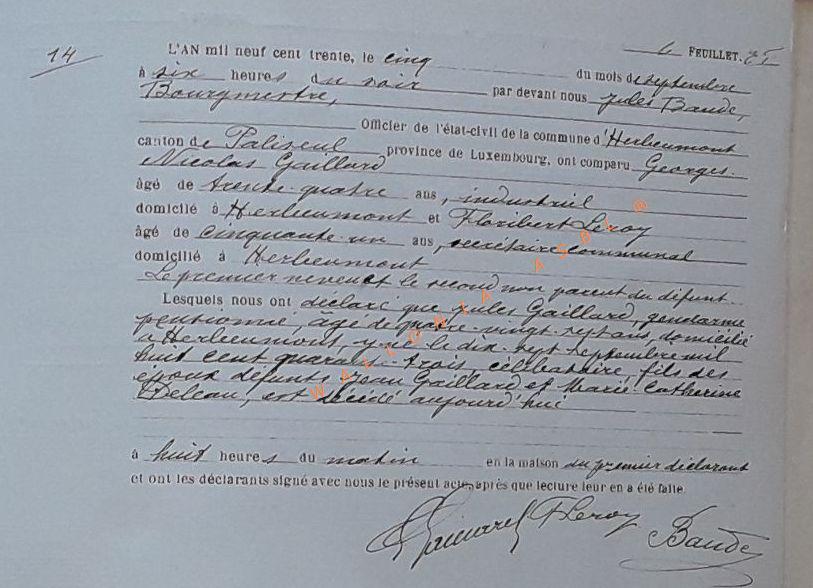 14
FEUILLET.
L'AN mil neuf cent trente, le cinq du mois de septembre
à six heures du soir par devant nous Jules Baude,
Bourgmestre,
Officier de l'état-civil de la commune d'Herbeumont
canton de Paliseul province de Luxembourg, ont comparu Georges
Nicolas Gaillard
âgé de trente-quatre ans, industriel
domicilié à Herbeumont et Floribert Leroy
âgé de cinquante un ans, secrétaire communal
domicilié à Herbeumont
Le premier neveu et le second non parent du défunt
Lesquels nous ont déclaré que Jules Gaillard, gendarme
pensionné, âgé de quatre-vingt-sept ans, domicilié
à Herbeumont, y né le dix sept septembre mil
huit cent quarante-trois, célibataire, fils des
époux défunts Jean Gaillard et Marie-Catherine
est décédé aujourd'hui
à huit heures du matin en la maison du premier déclarant
et ont les déclarants signé avec nous le présent acte, après que lecture leur en a été faite.
Gaillard FLeroy Baude
WALLONIA ASBL @